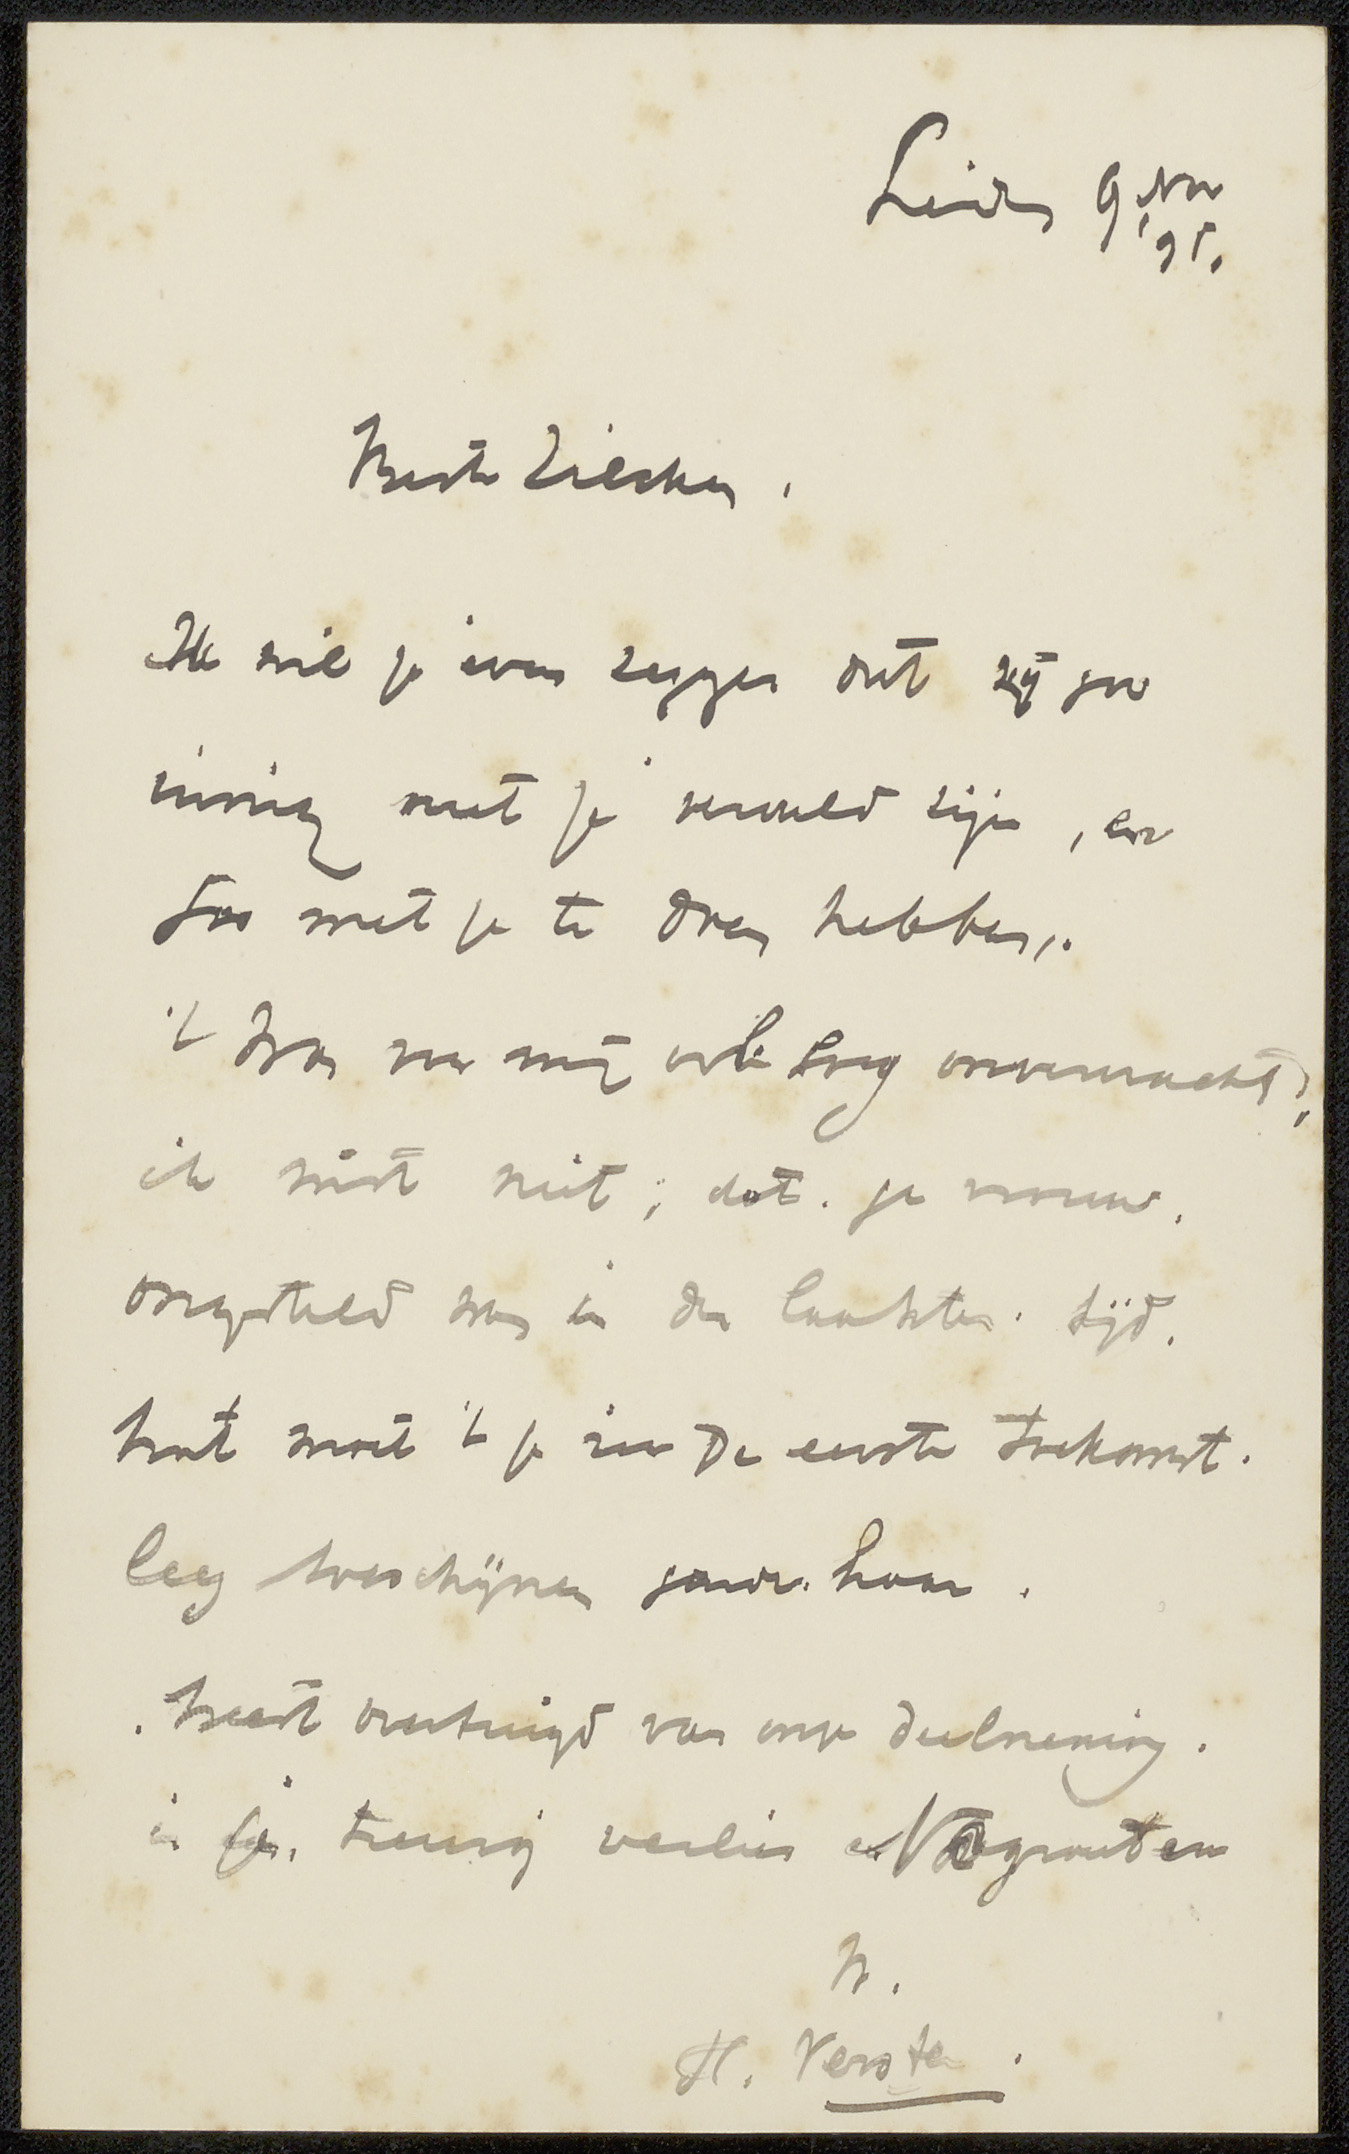 Leiden 9 Nov
'95.
Beste Zilcken,
Ik wil je even zeggen dat wij zoo
innig met je vervuld zijn, en
zoo met je te doen hebben.
't Was voor mij erg onverwacht,
ik wist niet, dat je vrouw
ongesteld was in den laatsten tijd.
Wat moet 't je in de eerste toekomst
leeg toeschijnen zonder haar.
Weest overtuigd van onze deelneming.
in je treurig verlies en gegroet en
H. Verster